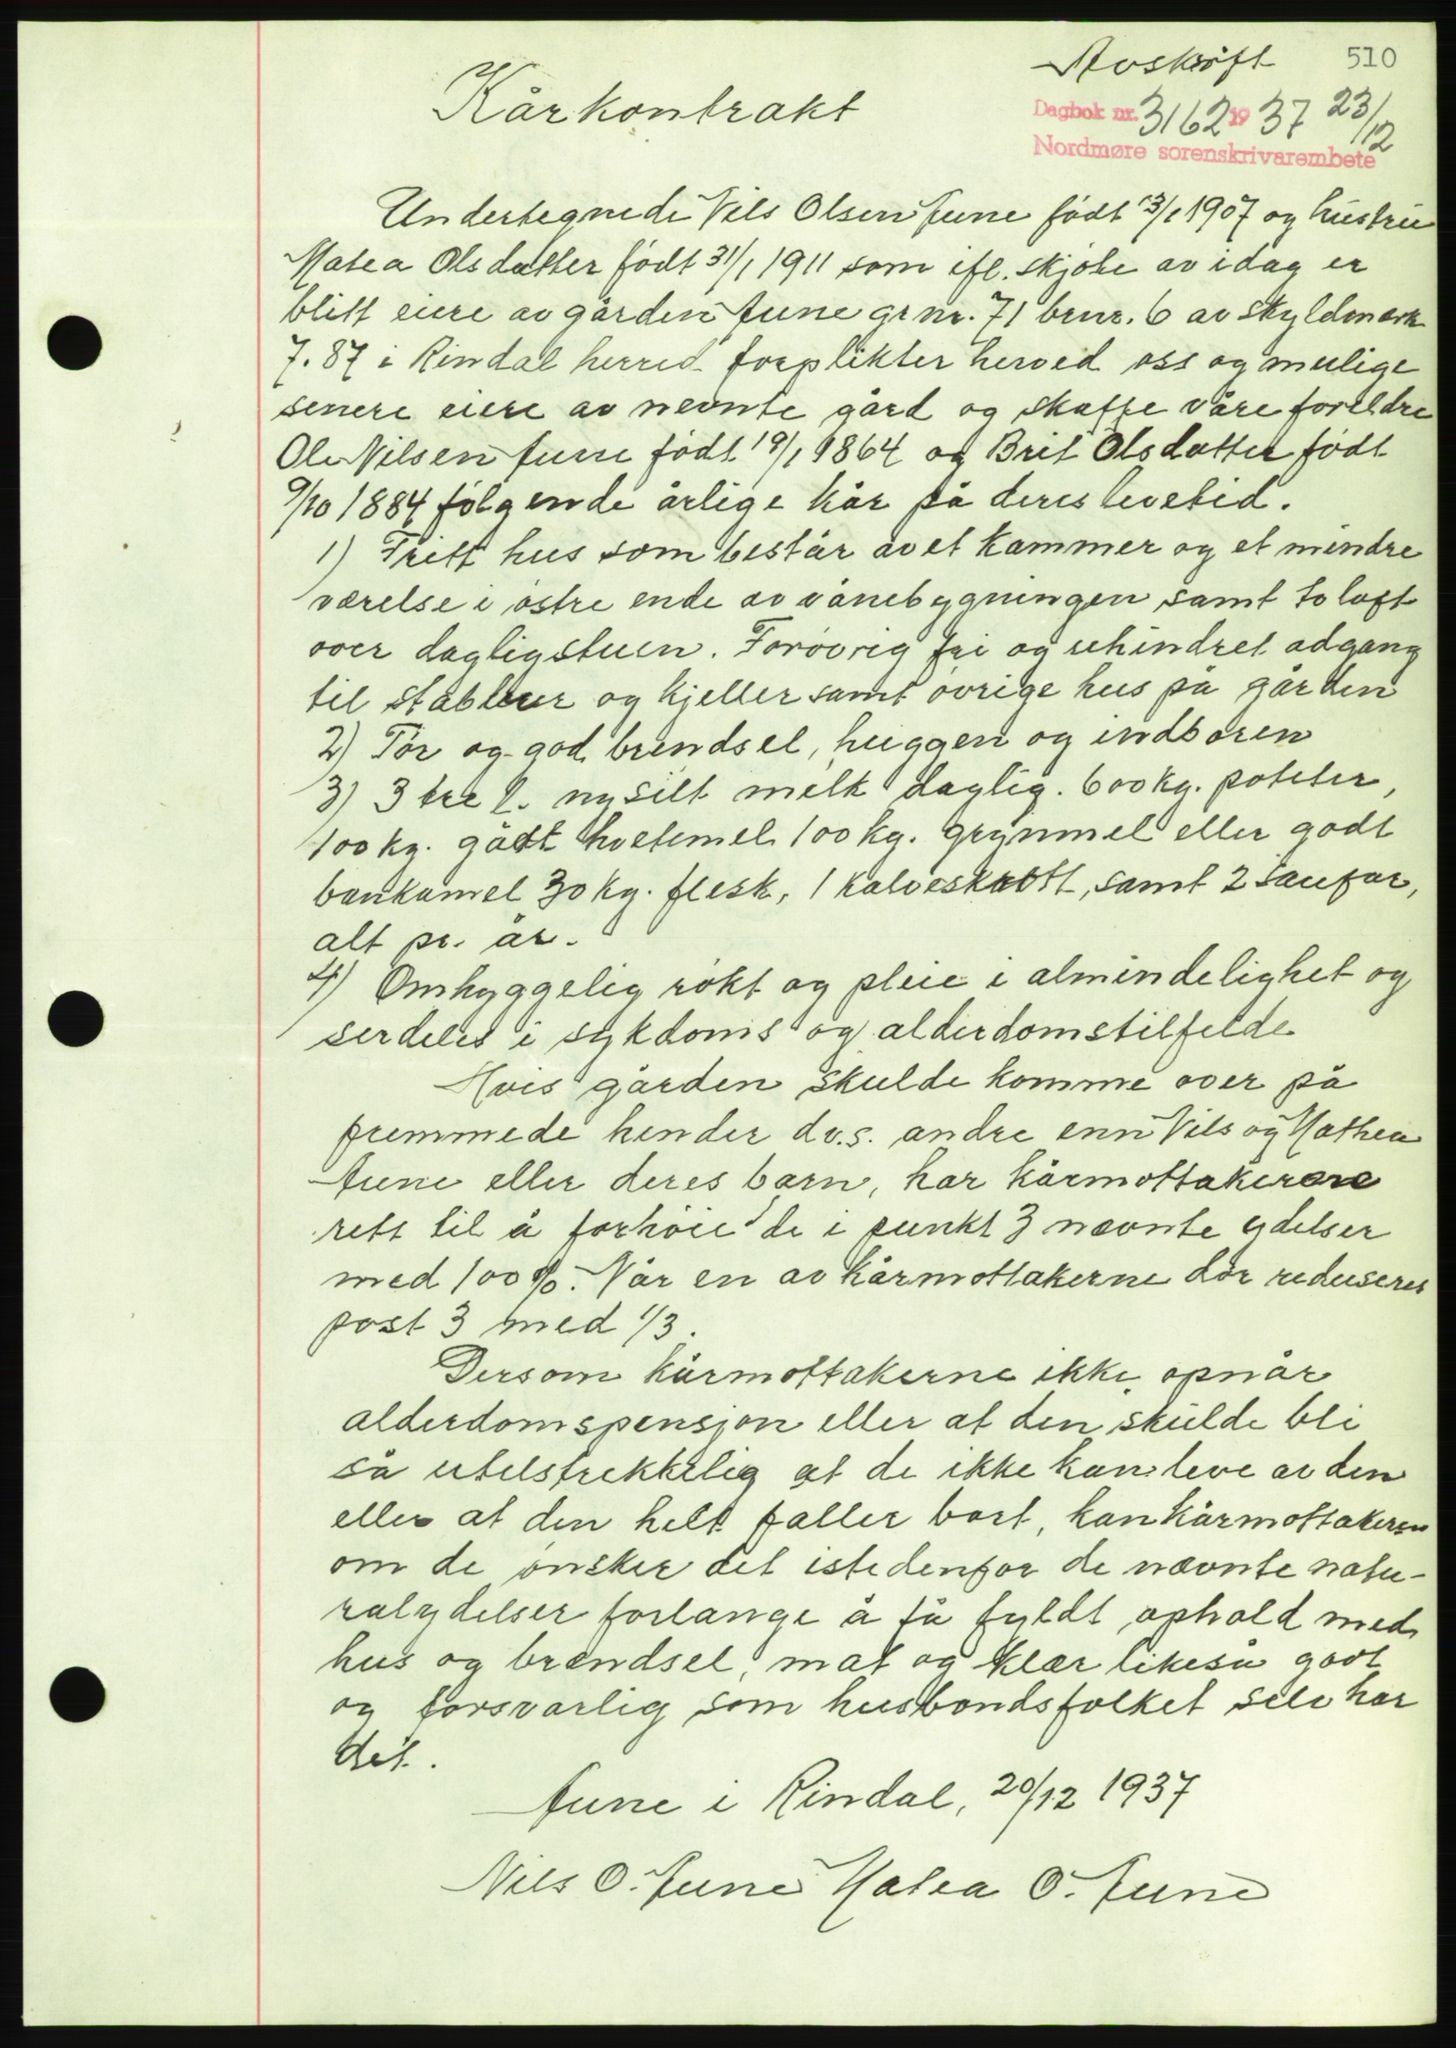 Avskrift 510
Kårkontrakt
Dagbok nr. 3162 1937 23/12
Nordmøre sorenskrivarembete
Undertegnede Nils Olsen Aune født 13/1 1907 og hustru
Matea Olsdatter født 31/1 1911 som ifl. skjøte av idag er
blitt eiere av gården Aune grnr. 71 brnr. 6 av skyldmark
7.87 i Rindal herred forplikter herved oss og mulige
senere eiere av nevnte gård og skaffe våre foreldre
Ole Nilsen Aune født 19/1 1864 og Brit Olsdatter født
9/10 1884 følgende årlige kår på deres levetid.
1) Fritt hus som består av et kammer og et mindre
værelse i østre ende av vånebygningen samt to loft
over dagligstuen. Forøvrig fri og uhindret adgang
til stabbur og kjeller samt øvrige hus på gården
2) Tør og god brendsel, huggen og indboren
3) 3 tre l. nysilt melk daglig. 600 kg. poteter,
100 kg. godt hvetemel 100 kg. grynmel eller godt
bankamel 30 kg. flesk, 1 kalveskrott, samt 2 saufar,
alt pr. år.
4) Omhyggelig røkt og pleie i almindelighet og
serdeles i sykdoms og alderdomstilfelde
Hvis gården skulde komme over på
fremmede hender d.v.s. andre enn Nils og Mathea
Aune eller deres barn, har kårmottakerene
rett til å forhøie de i punkt 3 nævnte ydelser
med 100%. Når en av kårmottakerne dør reduseres
post 3 med 1/3.
Dersom kårmottakerne ikke opnår
alderdomspensjon eller at den skulde bli
så utilstrekkelig at de ikke kan leve av den
eller at den helt faller bort, kan kårmottakeren
om de ønsker det istedenfor de nævnte natu-
ralydelser forlange å få fyldt ophold med
hus og brendsel, mat og klær likeså godt
og forsvarlig som husbondsfolket selv har
det.
Aune i Rindal, 20/12 1937
Nils O. Aune Matea O. Aune